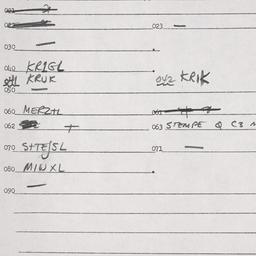 021
022
023 —
030 —
040 KRIGL
041 KRUK
042 KRIK
050 —
060 MERZHL
061
062
063 STEMPE Q C3
070 SHTEJSL
071 —
080 MINXL
090 —